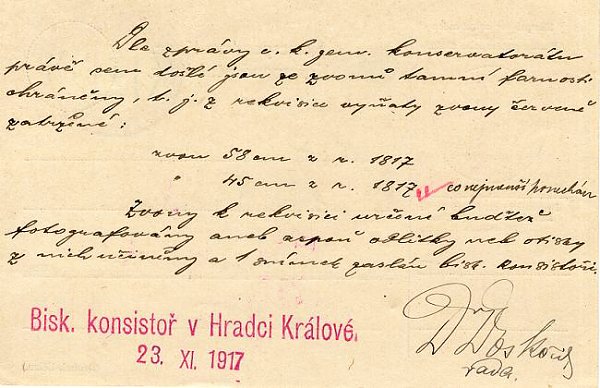 Dle zprávy c. k. gen. konservatorátu
právě sem došlé jsou ze zvonů tamní farnosti
chráněny, t. j. z rekvisice vyňaty zvony červeně
zatržené:
zvon 58 cm z r. 1817
" 45 cm z r. 1817 co nejmenší ponechán
Zvony k rekvisici určené buďtež
fotografovány aneb aspoň odlitky neb otisky
z nich učiněny a 1 snímek zaslán bisk. konsistoři.
Bisk. konsistoř v Hradci Králové.
23. XI. 1917
Dr
rada.